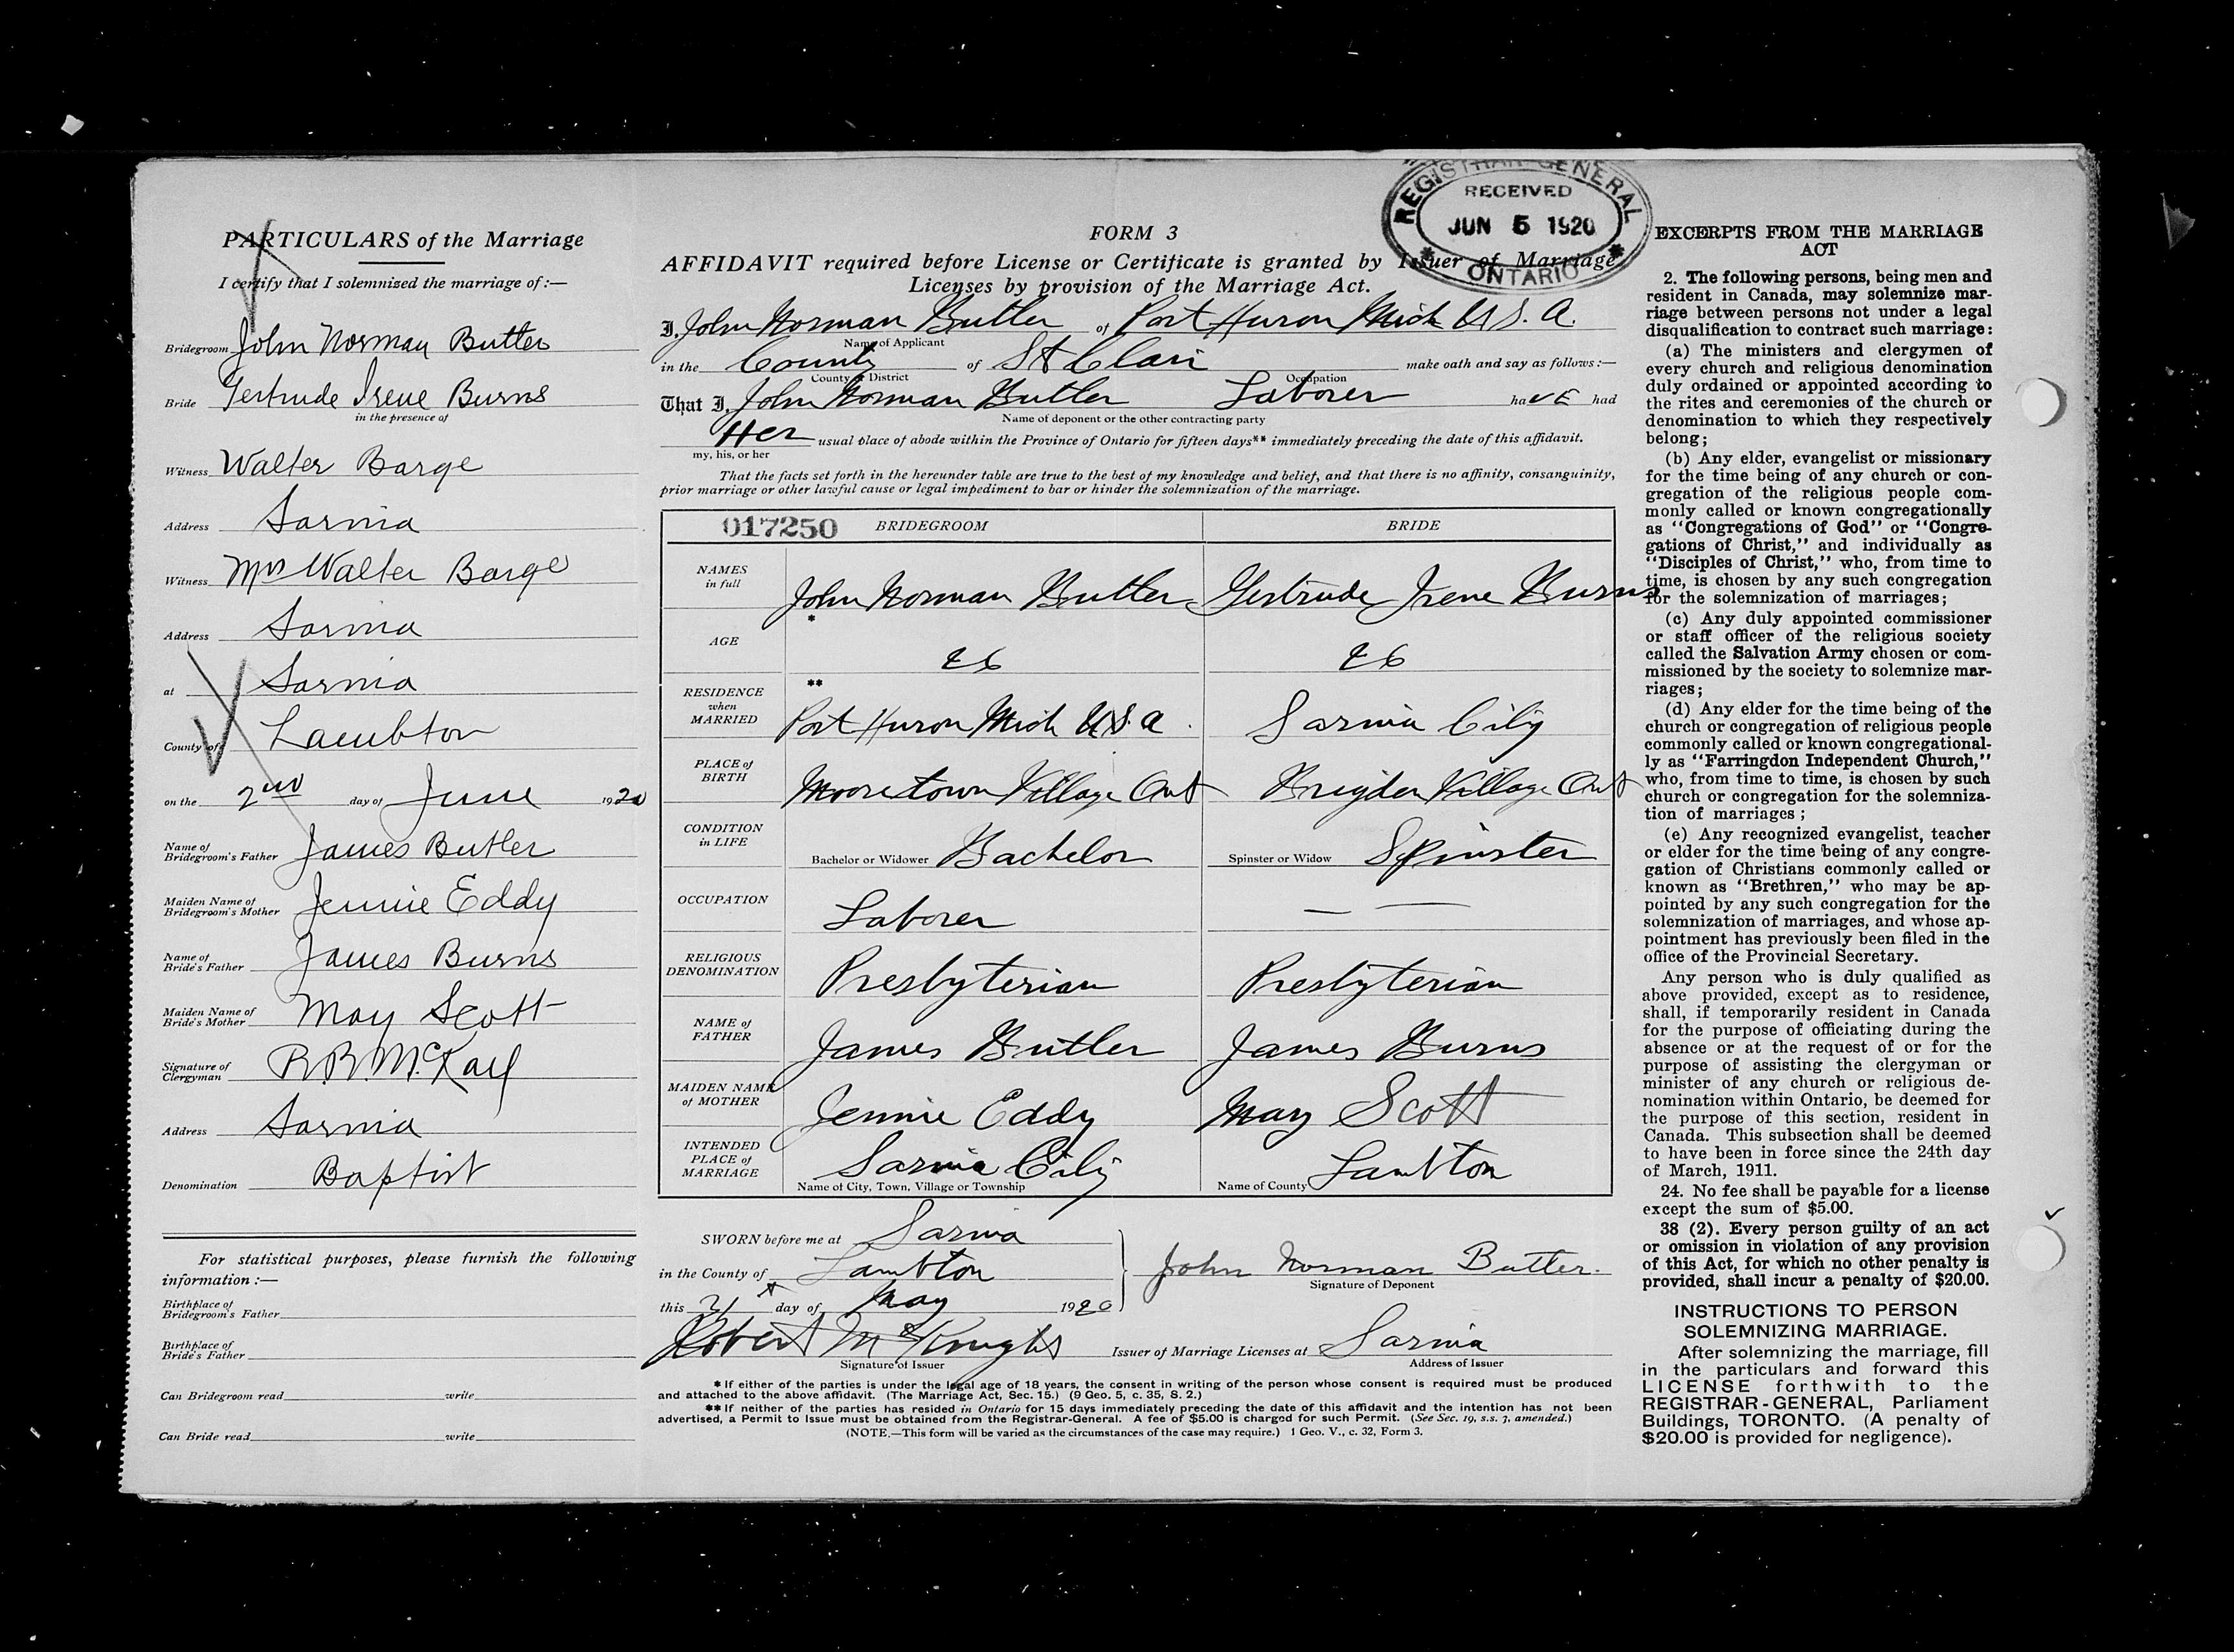 PARTICULARS of the Marriage
I certify that I solemnized the marriage of:—
Bridegroom John Norman Butler
Bride Gertrude Irene Burns
in the presence of
Witness Walter Barge
Address Sarnia
Witness Mrs Walter Barge
Address Sarnia
at Sarnia
County of Lambton
on the 2nd day of June 1920
Name of
Bridegroom's Father James Butler
Maiden Name of
Bridegroom's Mother Jennie Eddy
Name of
Bride's Father James Burns
Maiden Name of
Bride's Mother May Scott
Signature of
Clergyman
Address Sarnia
Denomination Baptist
For statistical purposes, please furnish the following
information:—
Birthplace of
Bridegroom's Father
Birthplace of
Bride's Father
Can Bridegroom read write
Can Bride read write
REGISTRAR-GENERAL
RECEIVED
JUN 5 1920
ONTARIO
FORM 3
AFFIDAVIT required before License or Certificate is granted by Issuer of Marriage
Licenses by provision of the Marriage Act.
I, John Norman Butler of Port Huron Mich U.S.A.
Name of Applicant
in the County of St Clair make oath and say as follows:—
County or District Occupation
That I, John Norman Butler Laborer haVE had
Name of deponent or the other contracting party
Her usual place of abode within the Province of Ontario for fifteen days** immediately preceding the date of this affidavit.
my, his, or her
That the facts set forth in the hereunder table are true to the best of my knowledge and belief, and that there is no affinity, consanguinity,
prior marriage or other lawful cause or legal impediment to bar or hinder the solemnization of the marriage.
017250 BRIDEGROOM BRIDE
NAMES
in full John Norman Butler Gertrude Irene Burns
*
AGE 26 26
**
RESIDENCE
when
MARRIED Port Huron Mich U.S.A. Sarnia City
PLACE of
BIRTH Mooretown Village Ont Brigden Village Ont
CONDITION
in LIFE Bachelor or Widower Bachelor Spinster or Widow Spinster
OCCUPATION Laborer — —
RELIGIOUS
DENOMINATION Presbyterian Presbyterian
NAME of
FATHER James Butler James Burns
MAIDEN NAME
of MOTHER Jennie Eddy May Scott
INTENDED
PLACE of
MARRIAGE Sarnia City Lambton
Name of City, Town, Village or Township Name of County
SWORN before me at Sarnia
in the County of Lambton John Norman Butler.
Signature of Deponent
this 31st day of May 1920
Robert McKnight Issuer of Marriage Licenses at Sarnia
Signature of Issuer Address of Issuer
* If either of the parties is under the legal age of 18 years, the consent in writing of the person whose consent is required must be produced
and attached to the above affidavit. (The Marriage Act, Sec. 15.) (9 Geo. 5, c. 35, S. 2.)
** If neither of the parties has resided in Ontario for 15 days immediately preceding the date of this affidavit and the intention has not been
advertised, a Permit to Issue must be obtained from the Registrar-General. A fee of $5.00 is charged for such Permit. (See Sec. 19, s.s. 7, amended.)
(NOTE.—This form will be varied as the circumstances of the case may require.) 1 Geo. V., c. 32, Form 3.
EXCERPTS FROM THE MARRIAGE
ACT
2. The following persons, being men and
resident in Canada, may solemnize mar-
riage between persons not under a legal
disqualification to contract such marriage:
(a) The ministers and clergymen of
every church and religious denomination
duly ordained or appointed according to
the rites and ceremonies of the church or
denomination to which they respectively
belong;
(b) Any elder, evangelist or missionary
for the time being of any church or con-
gregation of the religious people com-
monly called or known congregationally
as "Congregations of God" or "Congre-
gations of Christ," and individually as
"Disciples of Christ," who, from time to
time, is chosen by any such congregation
for the solemnization of marriages;
(c) Any duly appointed commissioner
or staff officer of the religious society
called the Salvation Army chosen or com-
missioned by the society to solemnize mar-
riages;
(d) Any elder for the time being of the
church or congregation of religious people
commonly called or known congregational-
ly as "Farringdon Independent Church,"
who, from time to time, is chosen by such
church or congregation for the solemniza-
tion of marriages;
(e) Any recognized evangelist, teacher
or elder for the time being of any congre-
gation of Christians commonly called or
known as "Brethren," who may be ap-
pointed by any such congregation for the
solemnization of marriages, and whose ap-
pointment has previously been filed in the
office of the Provincial Secretary.
Any person who is duly qualified as
above provided, except as to residence,
shall, if temporarily resident in Canada
for the purpose of officiating during the
absence or at the request of or for the
purpose of assisting the clergyman or
minister of any church or religious de-
nomination within Ontario, be deemed for
the purpose of this section, resident in
Canada. This subsection shall be deemed
to have been in force since the 24th day
of March, 1911.
24. No fee shall be payable for a license
except the sum of $5.00.
38 (2). Every person guilty of an act
or omission in violation of any provision
of this Act, for which no other penalty is
provided, shall incur a penalty of $20.00.
INSTRUCTIONS TO PERSON
SOLEMNIZING MARRIAGE.
After solemnizing the marriage, fill
in the particulars and forward this
LICENSE forthwith to the
REGISTRAR-GENERAL, Parliament
Buildings, TORONTO. (A penalty of
$20.00 is provided for negligence).